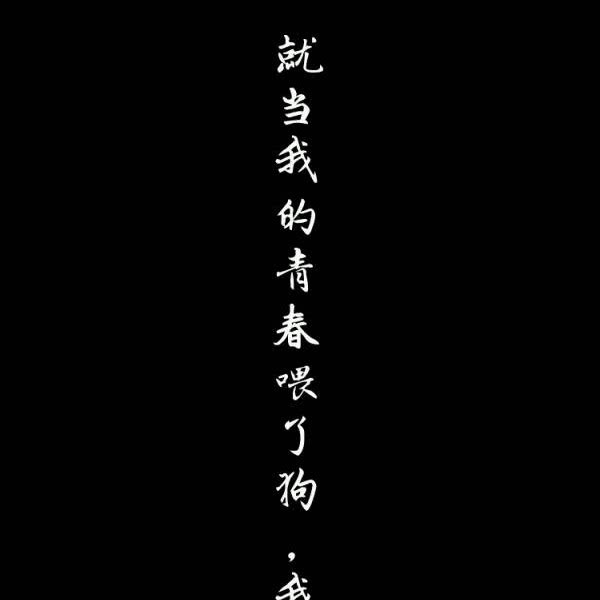 就当我的青春喂了狗，我